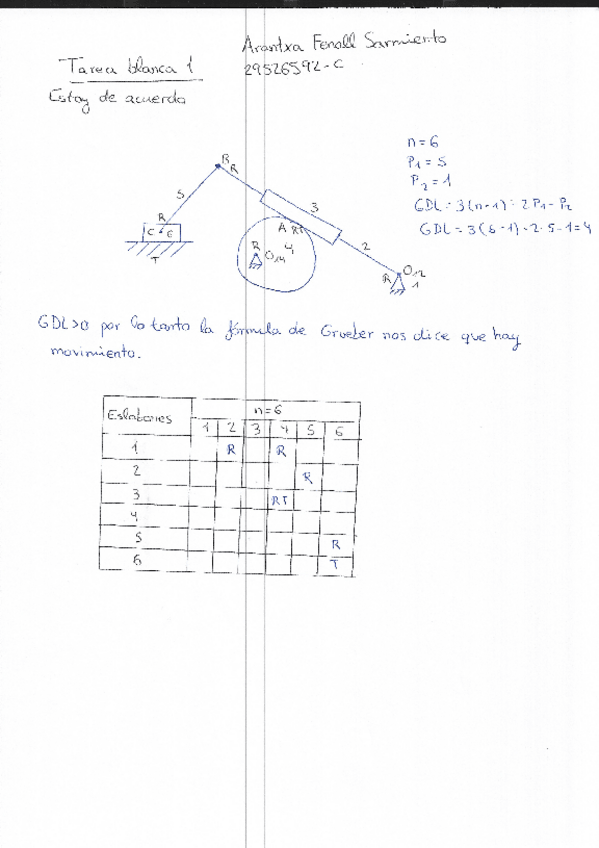 Arantxa Fenoll Sarmiento
29526592-C
Tarea blanca 1
Estoy de acuerdo
n=6
P1=5
P2=1
GDL=3(n-1)-2P1-P2
GDL=3(6-1)-2·5-1=4
B
R
5
3
R
C 6
T
A RT
4
R
O14
2
R
O12
1
GDL>0 por lo tanto la fórmula de Grueber nos dice que hay
movimiento.
Eslabones n=6
1 2 3 4 5 6
1 R R
2 R
3 RT
4
5 R
6 T